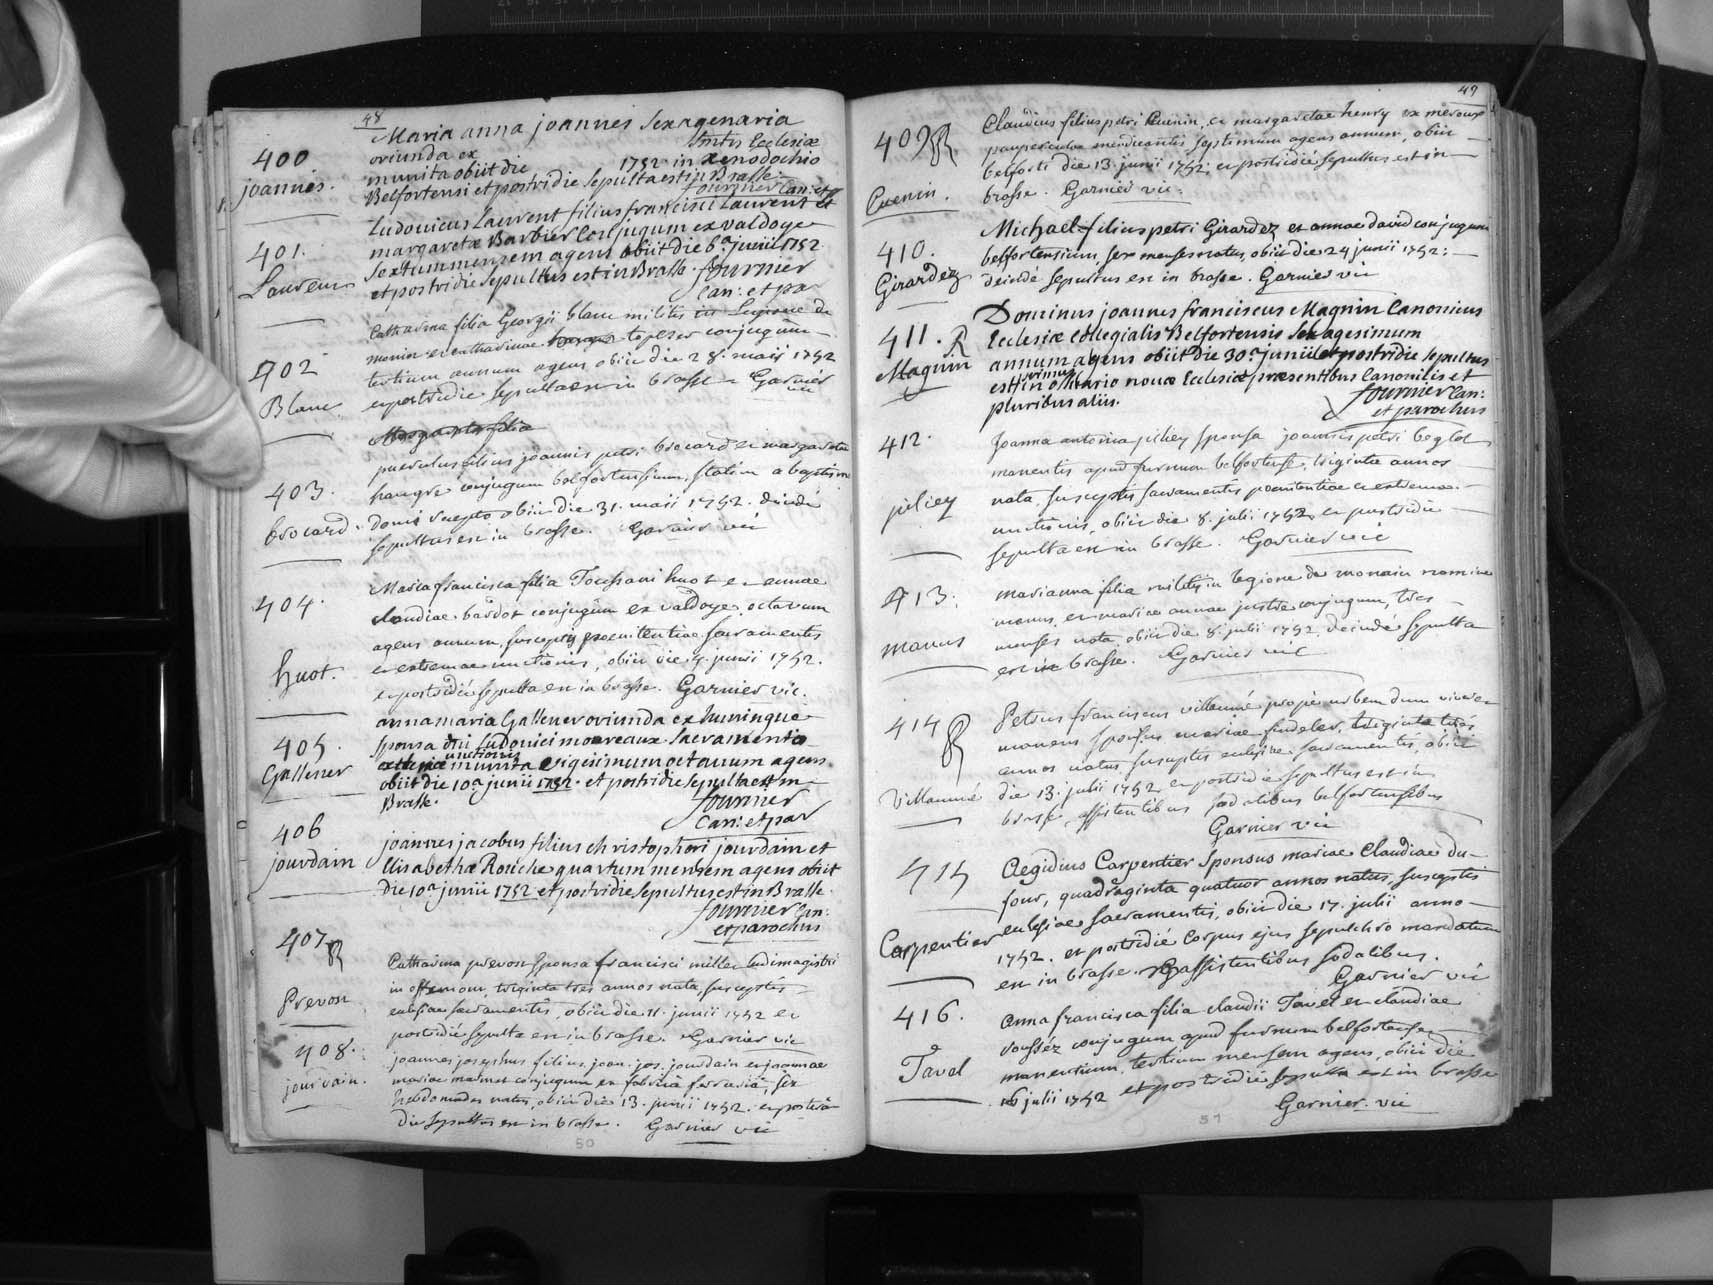 48
400
joannes.
Maria anna joannes Sexagenaria
oriunda ex Smtis Ecclesiæ
munita obiit die 1752. in Xenodochio
Belfortensi et postridie Sepulta est in Brasse.
fournier Can: et p
401.
Laurent
Ludovicus Laurent filius francisci Laurent et
margaretæ Barbier Conjugum ex valdoye
Sextum mensem agens obiit die 6.a junii 1752
et postridie Sepultus est in Brasse. fournier
Can: et par
402
Blanc
Catharina filia Georgii blanc militis in Legione de
monin et catharinae topeser conjugum
tertium annum agens obiit die 28. maii 1752
et postridie sepulta est in brasse. Garnier
vic
403.
brocard.
Margareta filia
puerulus filius joannis petri brocard et margaretae
haugre conjugum belfortensium, statim a baptism
domi suepto obiit die 31. maii 1752. deindé
sepultus est in brasse. Garnier vic
404.
huot.
Maria francisca filia Toussani huot et annae
claudiae bardot conjugum ex valdoye, octavum
agens annum, susceptis poenitentiae sacramentis
et extremae unctionis, obiit die 4. junii 1752.
et postridié sepulta est in brasse. Garnier vic.
405.
Gallener
anna maria Gallener oriunda ex huningue
Sponsa dni Ludovici moreaux Sacramento
extremæ unctionis munita vigesimum octavum agens
obiit die 10.a junii 1752. et postridie sepulta est in
Brasse.
fournier
Can: et par
406
jourdain
joannes jacobus filius christophori jourdain et
Elisabethæ Roniche quartum mensem agens obiit
die 10.a junii 1752 et postridie sepultus est in Brasse.
fournier Can:
et parochus
407
Prevon
Catharina prevon sponsa francisci miller ludimagistri
in offemon, triginta tres annos nata, susceptis
eclesiae sacramentis, obiit die 11. junii 1752 et
postridié sepulta est in brasse. Garnier vic
408.
jourdain.
joannes josephus filius joan. jos. jourdain et joannae
mariae malmet conjugum ex fabricâ ferrariâ, sex
hebdomadas natus, obiit die 13. junii 1752. et posterâ
die sepultus est in brasse. Garnier vic
50
49
409
Cuenin.
Claudius filius petri Cuenin, et margaretae henry ex meroux
pauperculus mendicantis, septimum agens annum, obiit
belforti die 13. junii 1752. et postridié sepultus est in
brasse. Garnier vic.
410.
Girardez
Michael filius petri Girardez et annae david conjugum
belfortensium, sex menses natus, obiit die 24 junii 1752:
deindé sepultus est in brasse. Garnier vic
411.
Magnin
Dominus joannes franciscus Magnin Canonicus
Ecclesiæ Collegialis Belfortensis Sexagesimum
annum agens obiit die 30.a junii et postridie sepultus
est in ossuario novæ Ecclesiæ præsentibus Canonicis et
pluribus aliis.
fournier Can:
et parochus
412.
piliey
Joanna antonia piliey sponsa joannis petri boglot
manentis apud furnum belfortense, triginta annos
nata susceptis sacramentis poenitentiae et extremae
unctionis, obiit die 8. julii 1752. et postridié
sepulta est in brasse. Garnier vic
413.
manus
marianna filia militis in legione de monain nomine
manus, et mariae annae justre conjugum, tres
menses nata, obiit die 8. julii 1752. deindé sepulta
est in brasse. Garnier vic
414
Villaumé
Petrus franciscus villaumé propé urbem dum viveret
manens sponsus mariae findeler, triginta tres
annos natus susceptis eclesiae sacramentis, obiit
die 13. julii 1752 et postridie sepultus est in
brasse, assistentibus sodalibus belfortensibus
Garnier vic
415
Carpentier
Aegidius Carpentier sponsus mariae Claudiae du-
four, quadraginta quatuor annos natus, susceptis
eclesiae sacramentis, obiit die 17. julii anno
1752. et postridié corpus ejus sepulchro mandatum
est in brasse. assistentibus sodalibus.
Garnier vic
416.
Tavel
Anna francisca filia claudii Tavel et claudiae
voussez conjugum apud furnum belfortense
manentium, tertium mensem agens, obiit die
16 julii 1752 et postridié sepulta est in brasse
Garnier. vic
51